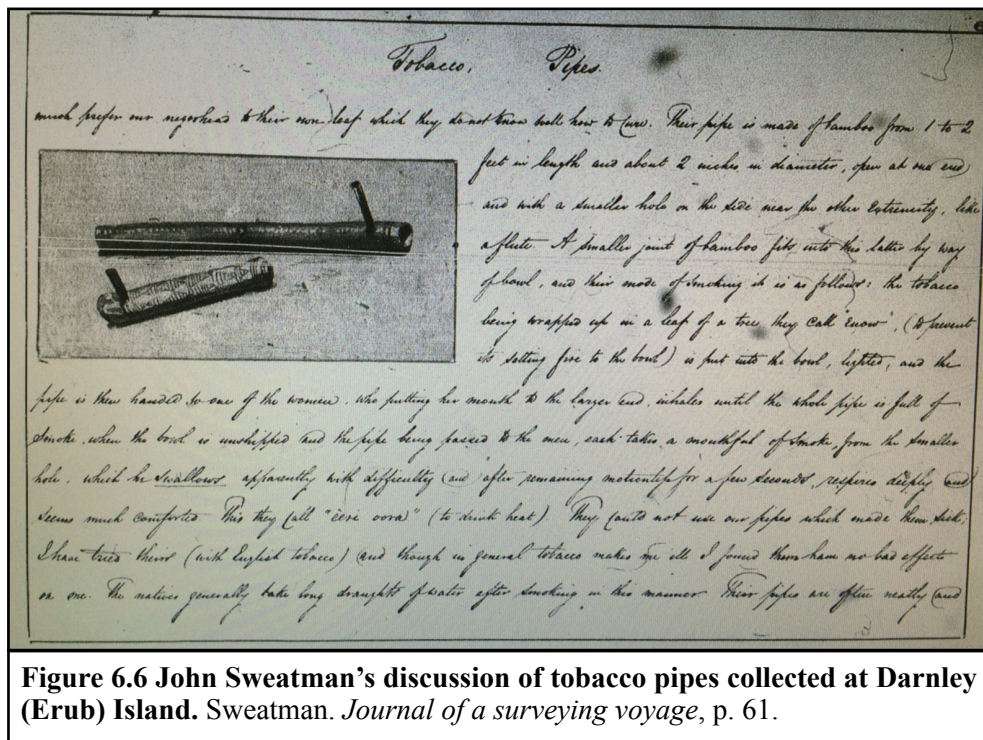 Tobacco, Pipes.
much prefer our negrohead to their own leaf which they do not know well how to cure. Their pipe is made of bamboo from 1 to 2
feet in length and about 2 inches in diameter, open at one end
and with a smaller hole on the side near the other extremity, like
a flute. A smaller joint of bamboo fits into this latter by way
of bowl, and their mode of smoking it is as follows: the tobacco
being wrapped up in a leaf of a tree they call (to prevent
its setting fire to the bowl) is put into the bowl, lighted, and the
pipe is then handed to one of the women, who putting her mouth to the larger end, inhales until the whole pipe is full of
smoke, when the bowl is unshipped and the pipe being passed to the men, each takes a mouthful of smoke, from the smaller
hole, which he swallows apparently with difficulty and after remaining motionless for a few seconds, respires deeply and
seems much comforted. This they call "oora" (to drink heat). They could not use our pipes which made them sick,
I have tried theirs (with English tobacco) and though in general tobacco makes me ill I found them have no bad effects
on me. The natives generally take long draughts of water after smoking in this manner Their pipes are often neatly and
Figure 6.6 John Sweatman’s discussion of tobacco pipes collected at Darnley
(Erub) Island. Sweatman. Journal of a surveying voyage, p. 61.